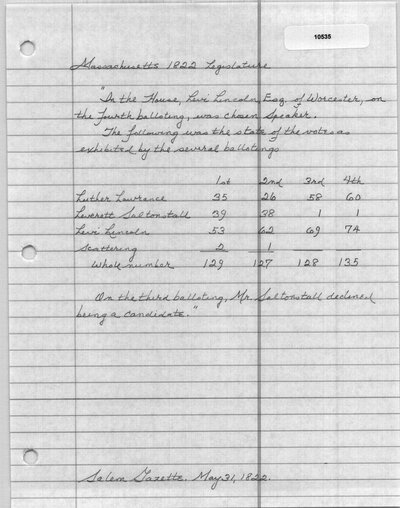 10535
Massachusetts 1822 Legislature
"In the House, Levi Lincoln Esq. of Worcester, on
the fourth balloting, was chosen Speaker.
The following was the state of the votes as
exhibited by the several ballotings
1st 2nd 3rd 4th
Luther Lawrance 35 26 58 60
Leverett Saltonstall 39 38 1 1
Levi Lincoln 53 62 69 74
Scattering 2 1
Whole number 129 127 128 135
On the third balloting, Mr. Saltonstall declined
being a candidate."
Salem Gazette. May 31, 1822.